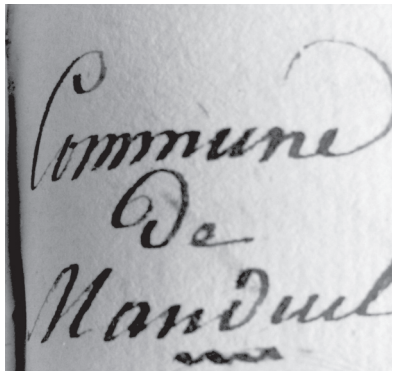 Commune
De
Manduel